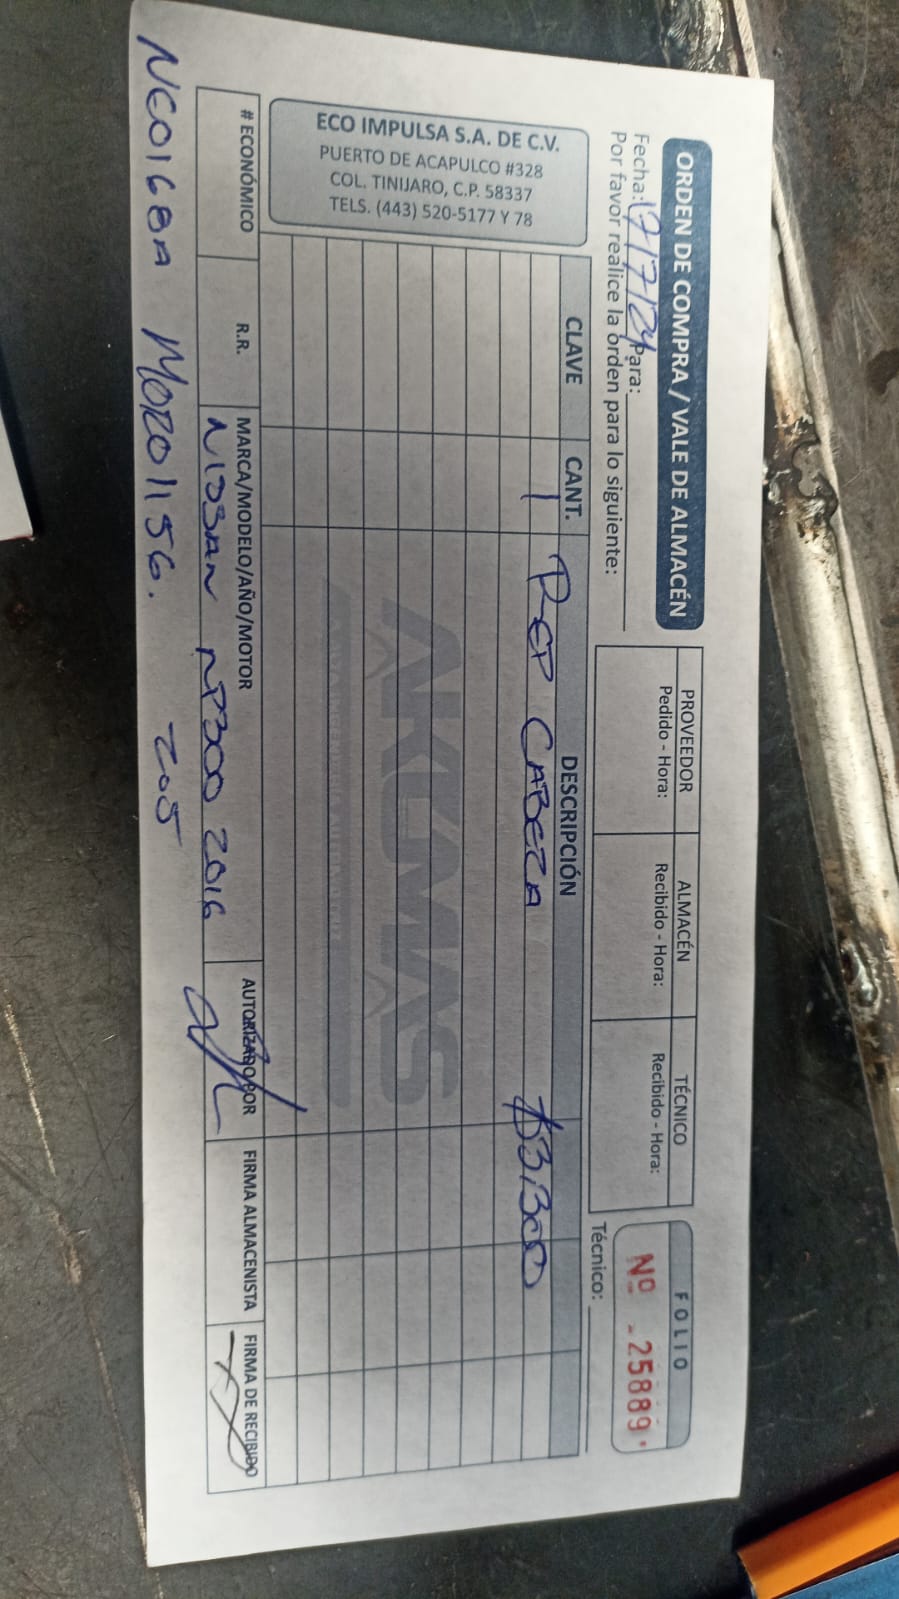 ORDEN DE COMPRA / VALE DE ALMACÉN
Fecha: 17/7/24 Para:
Por favor realice la orden para lo siguiente:
PROVEEDOR ALMACÉN TÉCNICO
Pedido - Hora: Recibido - Hora: Recibido - Hora:
FOLIO
Nº 25889
Técnico:
ECO IMPULSA S.A. DE C.V.
PUERTO DE ACAPULCO #328
COL. TINIJARO, C.P. 58337
TELS. (443) 520-5177 Y 78
CLAVE CANT. DESCRIPCIÓN
1 REP CABEZA $3,300
AKUMAS
# ECONÓMICO R.R. MARCA/MODELO/AÑO/MOTOR AUTORIZADO POR FIRMA ALMACENISTA FIRMA DE RECIBIDO
NISSAN NP300 2016
NC0168A MOR01156. ZOS